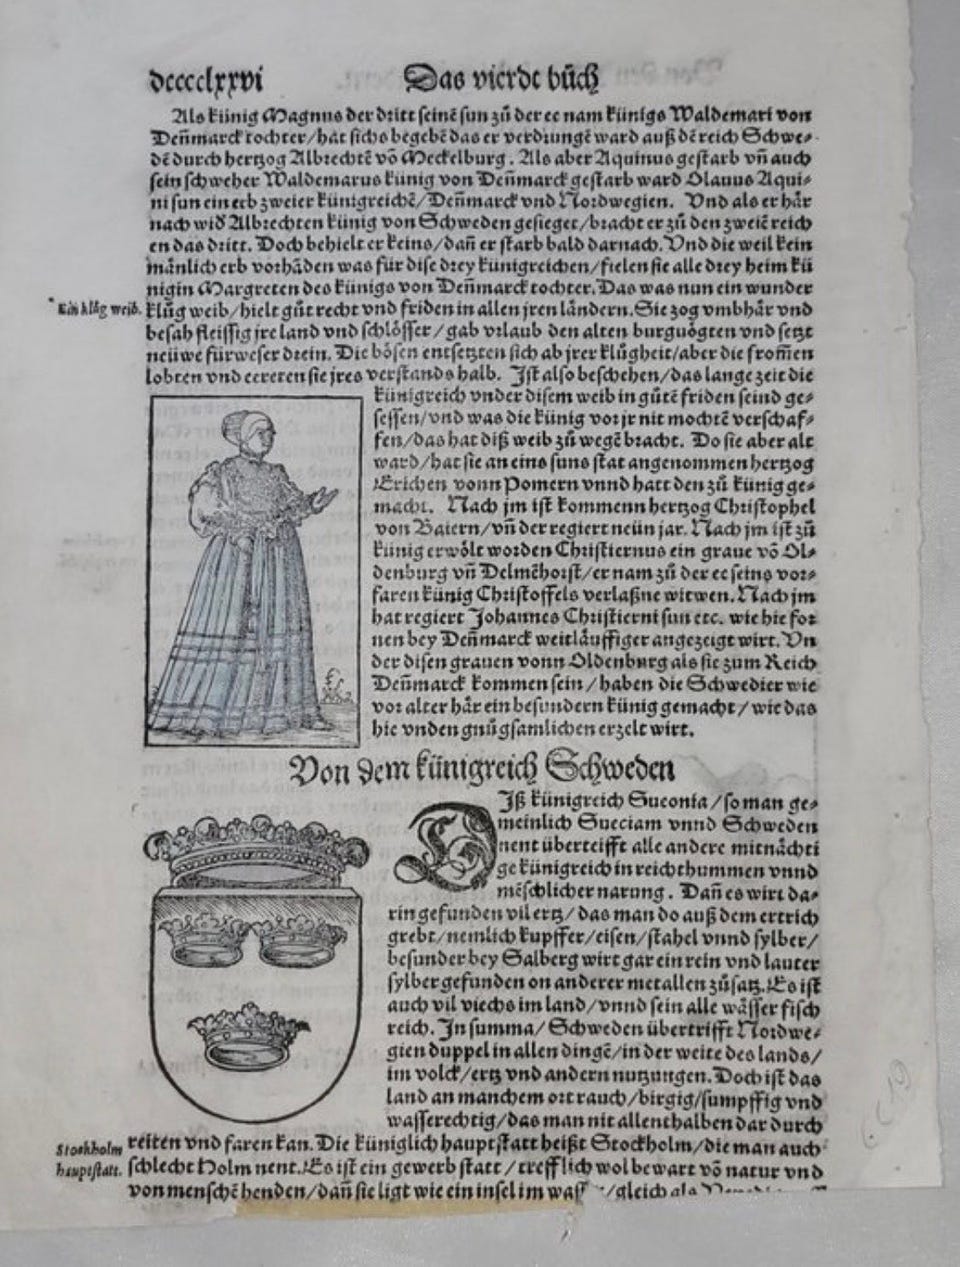 dccccclxxvi Das vierdt bůch
Als künig Magnus der dritt seinē sun zů der ee nam künigs Waldemari von
Deñmarck tochter/hat sichs begebē das er verdrungē ward auß dē reich Schwe-
dē durch hertzog Albrechtē vō Meckelburg. Als aber Aquinus gestarb vñ auch
sein schweher Waldemarus künig von Deñmarck gestarb ward Olauus Aqui-
ni sun ein erb zweier künigreichē/Deñmarck vnd Nordwegien. Vnd als er här
nach wid Albrechten künig von Schweden gesieget/bracht er zů den zweiē reich
en das dritt. Doch behielt er keins/dañ er starb bald darnach. Vnd die weil kein
mänlich erb vorhäden was für dise drey künigreichen/fielen sie alle drey heim kü
nigin Margreten des künigs von Deñmarck tochter. Das was nun ein wunder
Ein klůg weib.
klůg weib/hielt gůt recht vnd friden in allen jren ländern. Sie zog vmbhär vnd
besah fleissig jre land vnd schlösser/gab vrlaub den alten burguögten vnd setzt
neüwe fürweser drein. Die bösen entsetzten sich ab jrer klůgheit/aber die from̄en
lobten vnd eereten sie jres verstands halb. Ist also beschehen/das lange zeit die
künigreich vnder disem weib in gůtē friden seind ge-
sessen/vnd was die künig vor jr nit mochtē verschaf-
fen/das hat diß weib zů wegē bracht. Do sie aber alt
ward/hat sie an eins suns stat angenommen hertzog
Erichen vonn Pomern vnnd hatt den zů künig ge-
macht. Nach jm ist kommenn hertzog Christophel
von Baiern/vñ der regiert neün jar. Nach jm ist zů
künig erwölt worden Christiernus ein graue vō Ol-
denburg vñ Delmēhorst/er nam zů der ee seins vor-
faren künig Christoffels verlaßne witwen. Nach jm
hat regiert Johannes Christierni sun etc. wie hie for
nen bey Deñmarck weitläuffiger angezeigt wirt. Vn
der disen grauen vonn Oldenburg als sie zum Reich
Deñmarck kommen sein/haben die Schwedier wie
vor alter här ein besundern künig gemacht/wie das
hie vnden gnůgsamlichen erzelt wirt.
Von dem künigreich Schweden
Diß künigreich Sueonia/so man ge-
meinlich Sueciam vnnd Schweden
nent übertrifft alle andere mitnächti
ge künigreich in reichthummen vnnd
mēschlicher narung. Dañ es wirt da-
rin gefunden vil ertz/das man do auß dem ertrich
grebt/nemlich kupffer/eisen/stahel vnnd sylber/
besunder bey Salberg wirt gar ein rein vnd lauter
sylber gefunden on anderer metallen zůsatz. Es ist
auch vil viechs im land/vnnd sein alle wässer fisch
reich. In summa/Schweden übertrifft Nordwe-
gien duppel in allen dingē/in der weite des lands/
im volck/ertz vnd andern nutzungen. Doch ist das
land an manchem ort rauch/birgig/sumpffig vnd
wasserechtig/das man nit allenthalben dar durch
Stockholm
hauptstatt.
reiten vnd faren kan. Die küniglich hauptstatt heißt Stockholm/die man auch
schlecht Holm nent. Es ist ein gewerb statt/trefflich wol bewart vō natur vnd
von menschē henden/dañ sie ligt wie ein insel im /gleich als